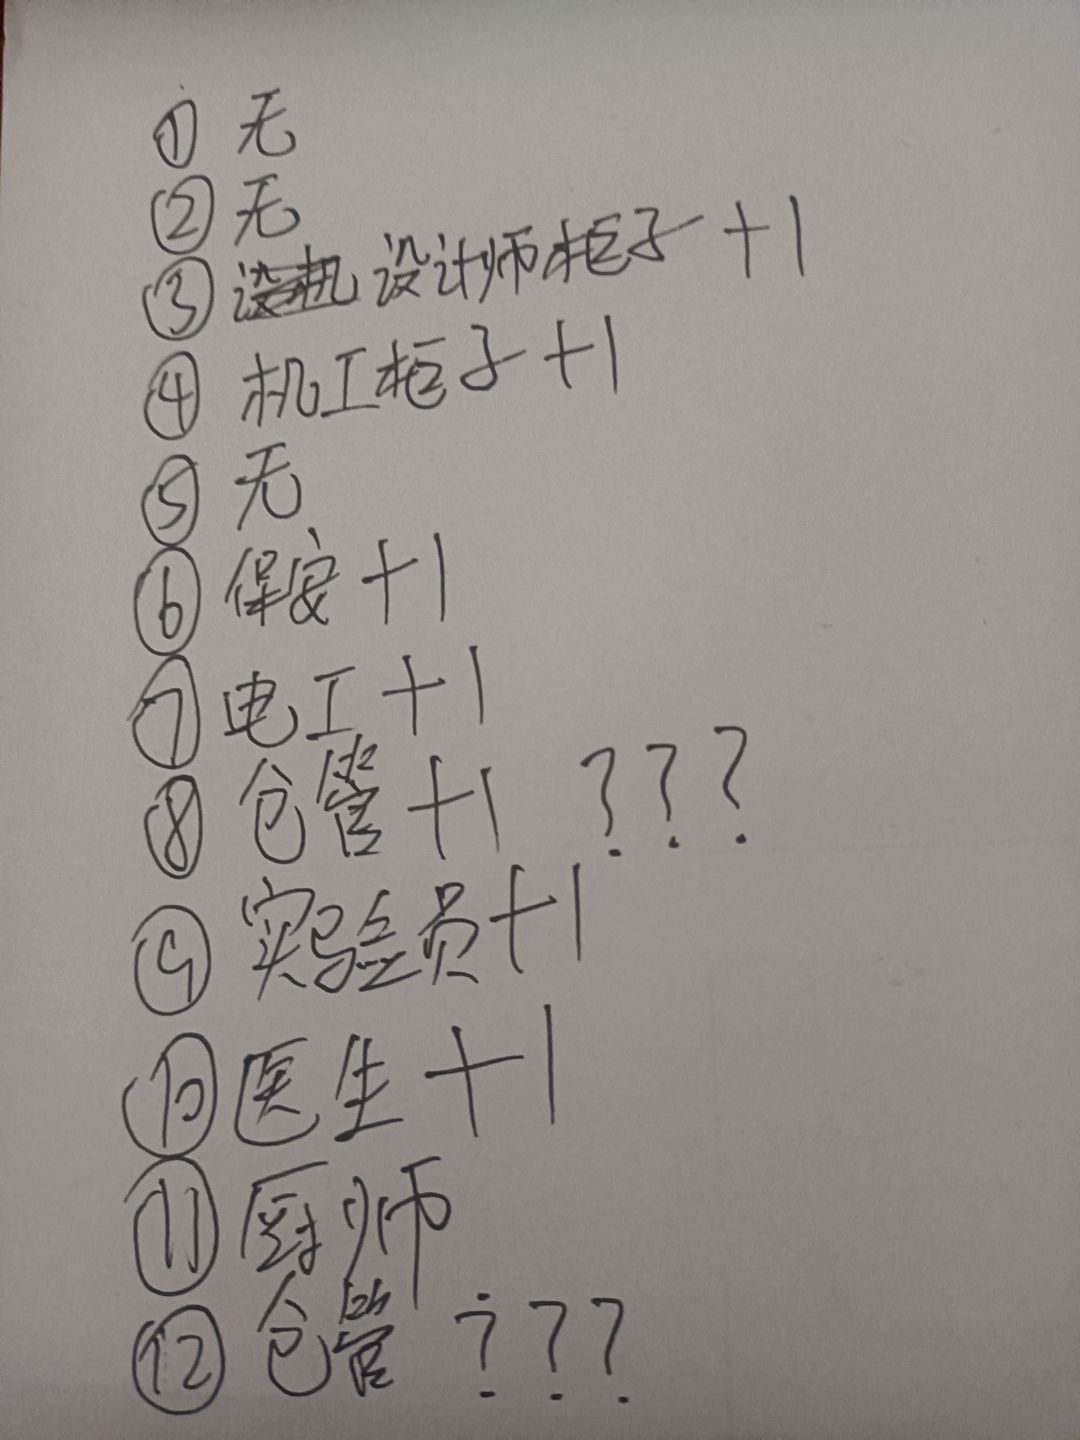 ① 无
② 无
③ 设计师柜子 +1
④ 机工柜子 +1
⑤ 无
⑥ 保安 +1
⑦ 电工 +1
⑧ 仓管 +1 ???
⑨ 实验员 +1
⑩ 医生 +1
⑪ 厨师
⑫ 仓管 ???